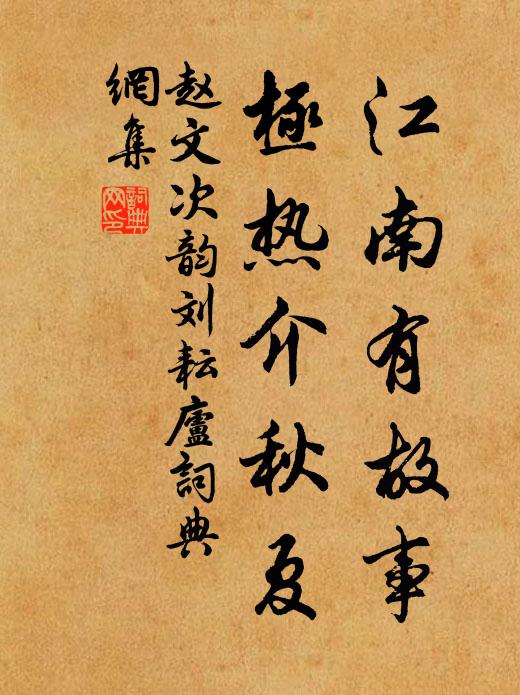 江南有故事
極热介秋夏
赵文次韵刘耘廬詞典
網集
詞典
网印